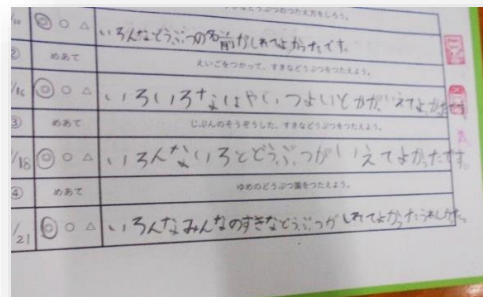 /10 ◎ ○ △ いろんなどうぶつの名前がしれてよかったです。
② めあて えいごをつかって、すきなどうぶつをつたえよう。
/16 ◎ ○ △ いろいろなはやいつよいとかがいえてよかったです。
③ めあて じぶんのそうぞうした、すきなどうぶつをつたえよう。
/18 ◎ ○ △ いろんないろとどうぶつがいえてよかったです。
④ めあて ゆめのどうぶつ園をつたえよう。
/21 ◎ ○ △ いろんなみんなのすきなどうぶつがしれてよかったうれしかった。